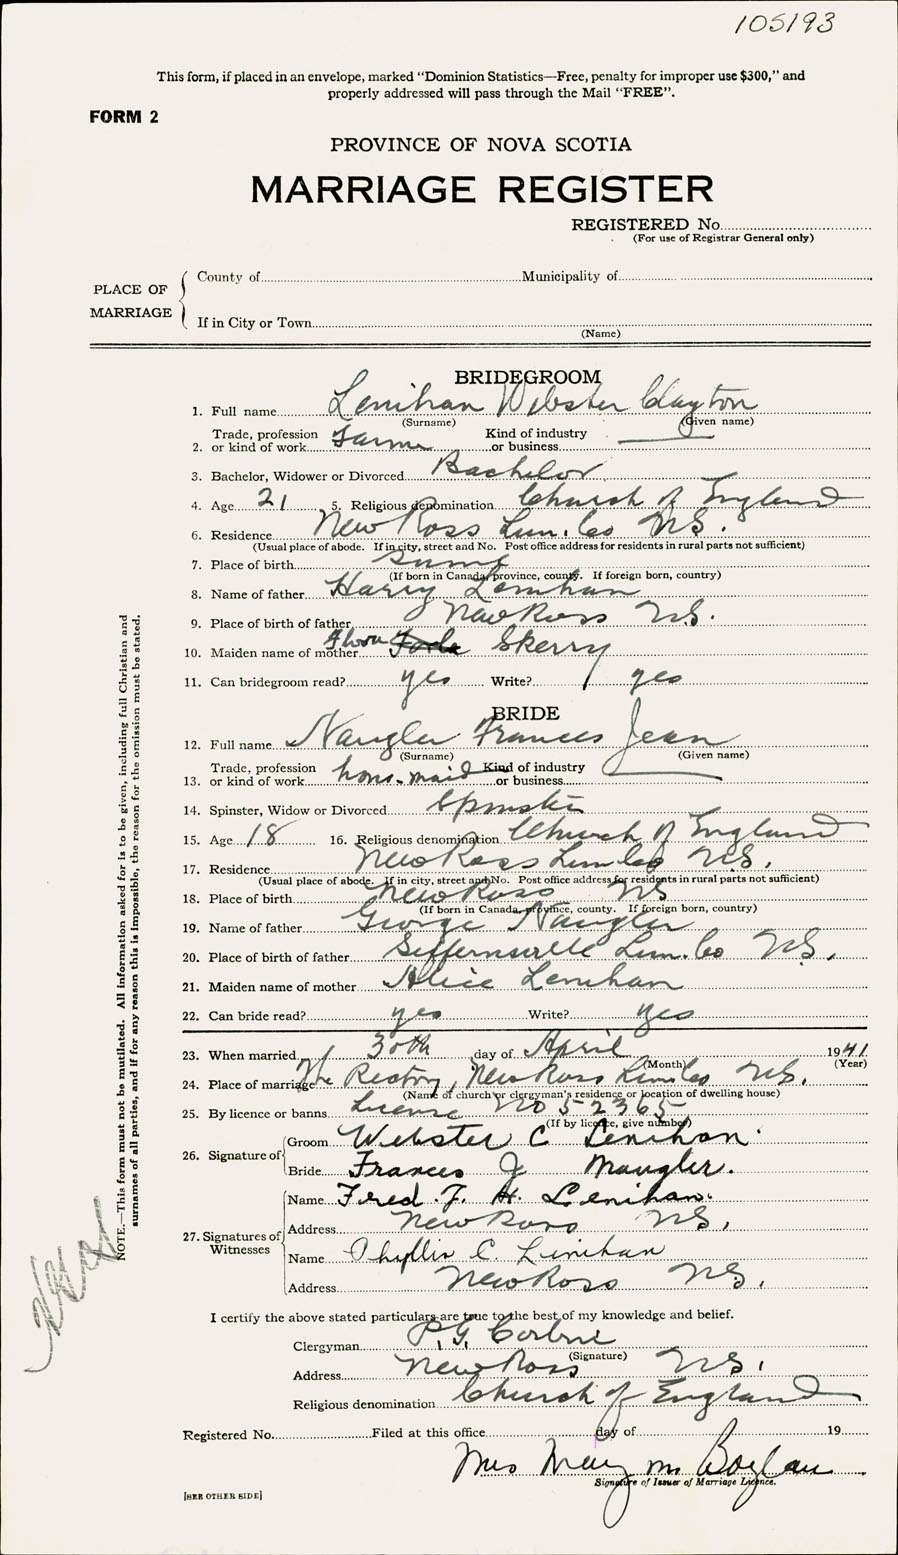 105193
This form, if placed in an envelope, marked "Dominion Statistics—Free, penalty for improper use $300," and
properly addressed will pass through the Mail "FREE".
FORM 2
PROVINCE OF NOVA SCOTIA
MARRIAGE REGISTER
REGISTERED No.
(For use of Registrar General only)
PLACE OF MARRIAGE
County of Municipality of
If in City or Town
(Name)
BRIDEGROOM
1. Full name Lenihan Webster Clayton
(Surname) (Given name)
2. Trade, profession or kind of work Farmer Kind of industry or business
3. Bachelor, Widower or Divorced Bachelor
4. Age 21 5. Religious denomination Church of England
6. Residence New Ross Lun. Co N.S.
(Usual place of abode. If in city, street and No. Post office address for residents in rural parts not sufficient)
7. Place of birth same
(If born in Canada, province, county. If foreign born, country)
8. Name of father Harry Lenihan
9. Place of birth of father New Ross N.S.
10. Maiden name of mother Skerry
11. Can bridegroom read? yes Write? yes
BRIDE
12. Full name Naugler Frances Jean
(Surname) (Given name)
13. Trade, profession or kind of work hous-maid Kind of industry or business
14. Spinster, Widow or Divorced Spinster
15. Age 18 16. Religious denomination Church of England
17. Residence New Ross Lun Co N.S.
(Usual place of abode. If in city, street and No. Post office address for residents in rural parts not sufficient)
18. Place of birth New Ross NS
(If born in Canada, province, county. If foreign born, country)
19. Name of father George Naugler
20. Place of birth of father Seffernsville Lun. Co N.S.
21. Maiden name of mother Alice Lenihan
22. Can bride read? yes Write? yes
23. When married 30th day of April 1941
(Month) (Year)
24. Place of marriage The Rectory, New Ross Lun Co N.S.
(Name of church or clergyman's residence or location of dwelling house)
25. By licence or banns License No 52365
(If by licence, give number)
26. Signature of
Groom Webster C Lenihan
Bride Frances J Naugler.
27. Signatures of Witnesses
Name Fred. J. H. Lenihan.
Address New Ross N.S.
Name Phyllis C. Linihan
Address New Ross N.S.
I certify the above stated particulars are true to the best of my knowledge and belief.
Clergyman P. G.
(Signature)
Address New Ross N.S.
Religious denomination Church of England
Registered No. Filed at this office day of 19
Mrs Mary M Boylan
Signature of Issuer of Marriage Licence.
[SEE OTHER SIDE]
NOTE.—This form must not be mutilated. All information asked for is to be given, including full Christian and
surnames of all parties, and if for any reason this is impossible, the reason for the omission must be stated.